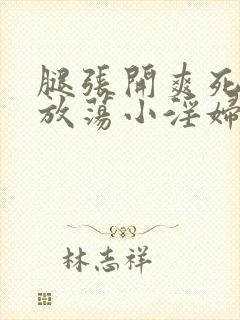 腿張開爽死
放蕩小淫婦
林志祥